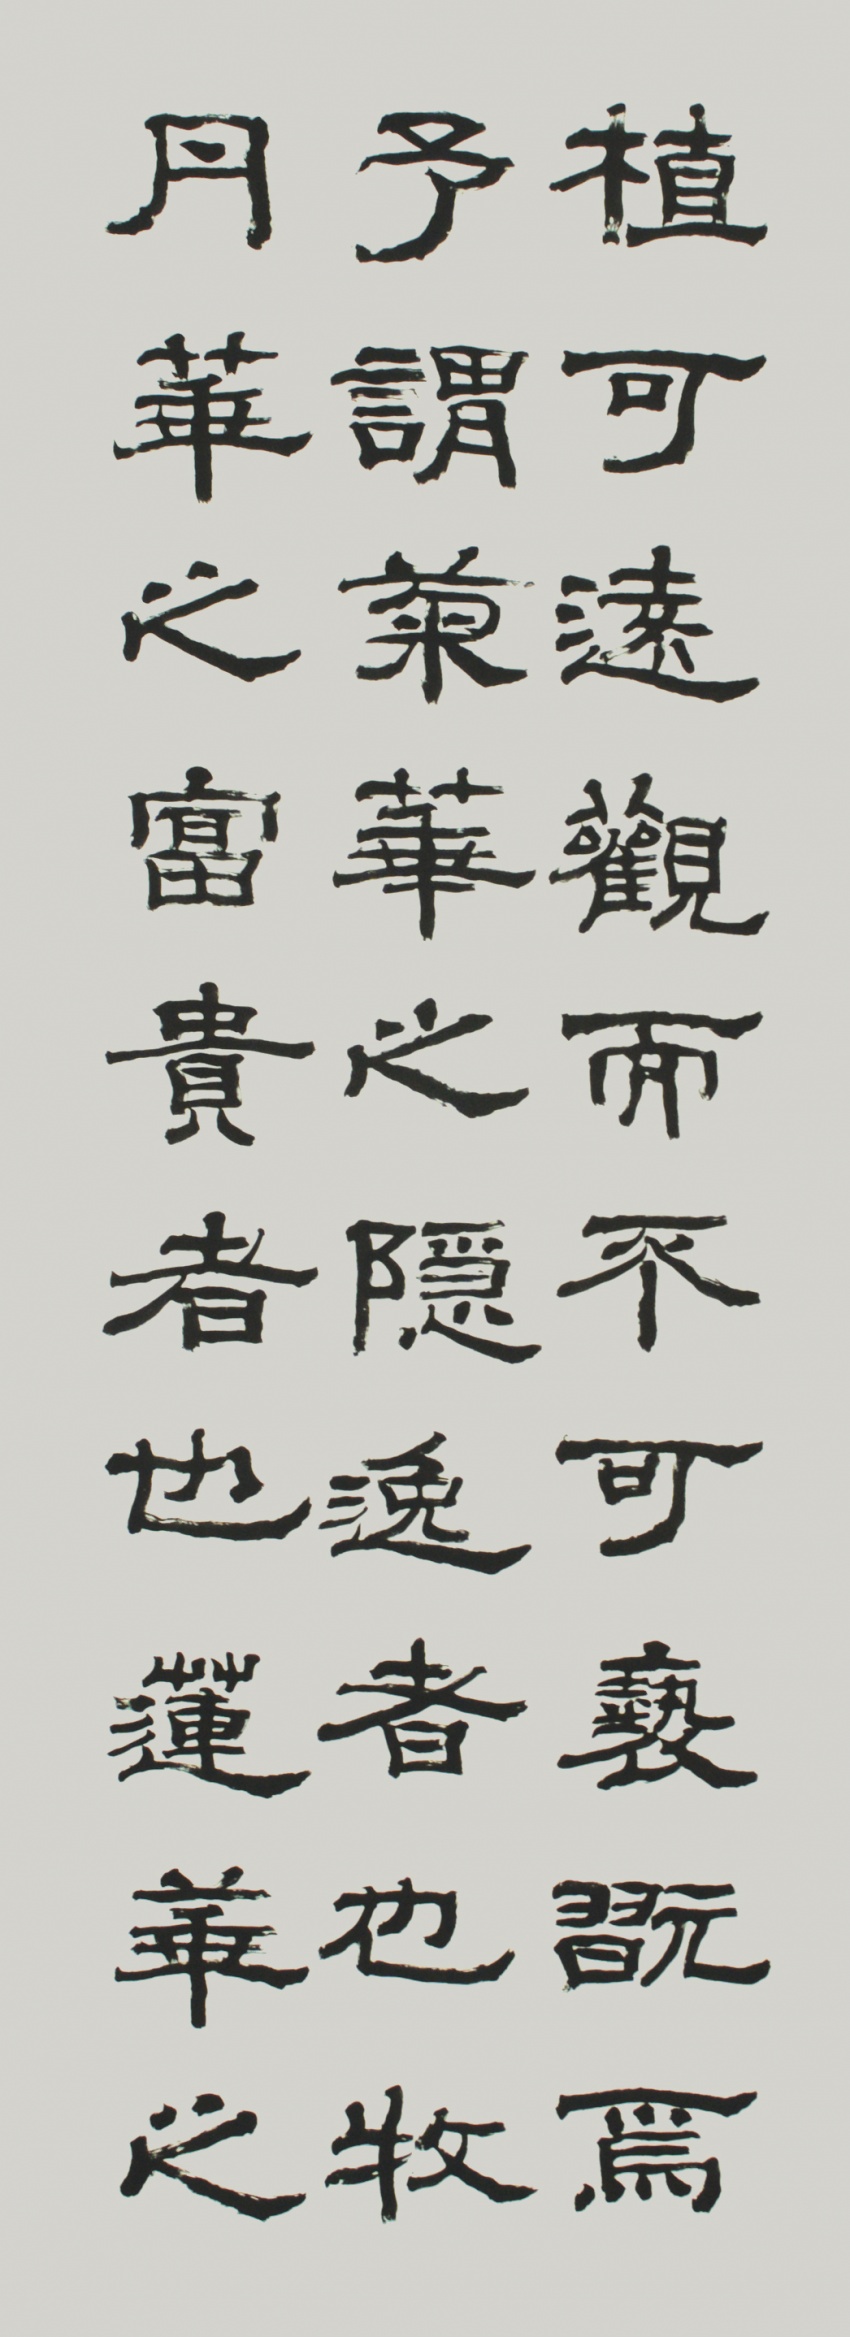 植可遠觀而不可褻翫焉
予謂菊華之隱逸者也牧
丹華之富貴者也蓮華之